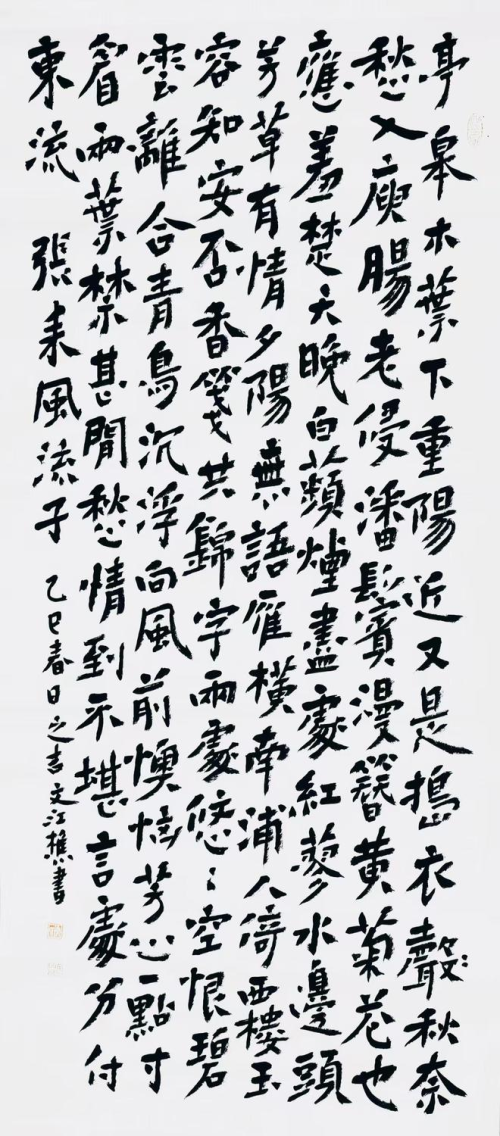 亭皋木葉下重陽近又是搗衣聲秋奈
愁入庾腸老侵潘鬢漫簪黃菊花也
應羞楚天晚白蘋煙盡處紅蓼水邊頭
芳草有情夕陽無語雁橫南浦人倚西樓玉
容知安否香箋共錦字兩處悠〻空恨碧
雲離合青鳥沉浮向風前懊惱芳心一點寸
眉兩葉禁甚閒愁情到不堪言處分付
東流 張耒風流子 乙巳春日之吉文江樵書